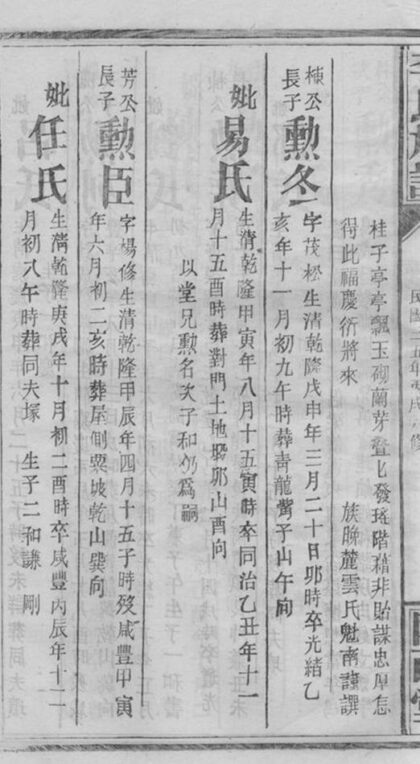 桂子亭亭飄玉砌蘭芽蓋匕發瑤階藉非貽謀忠厚怎
得此福慶衍將來　族晚麓雲氏魁南謹譔
棟公長子勳冬字茂松生清乾隆戊申年三月二十日卯時卒光緒乙
亥年十一月初九午時葬青龍嘴子山午向
妣易氏生清乾隆甲寅年八月十五寅時卒同治乙丑年十一
月十五酉時葬對門土地𡋾卯山酉向
以堂兄勳名次子和仍爲嗣
芳公長子勳臣字楊修生清乾隆甲辰年四月十五子時歿咸豐甲寅
年六月初二亥時葬屋側粟坡乾山巽向
妣任氏生清乾隆庚戌年十月初二酉時卒咸豐丙辰年十二
月初八午時葬同夫塚　生子二和謙　剛